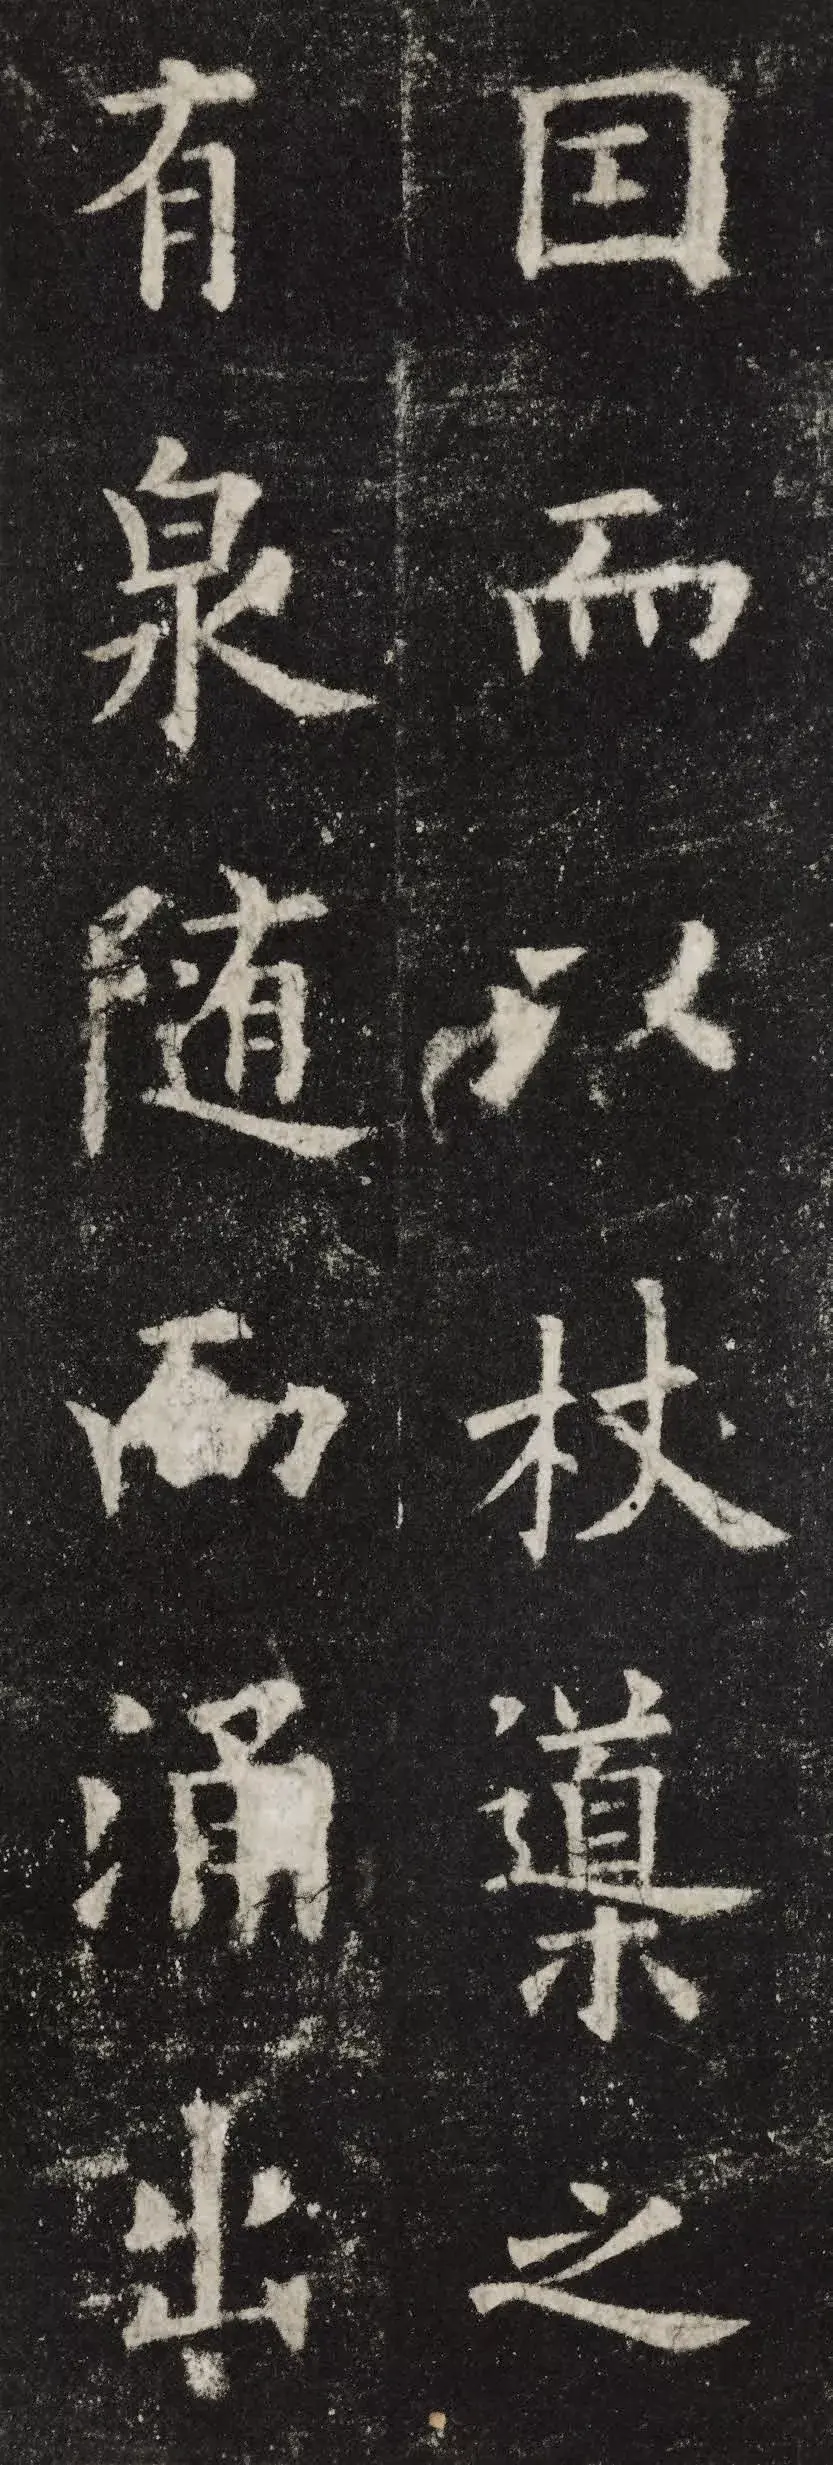 因而以杖導之
有泉随而涌出